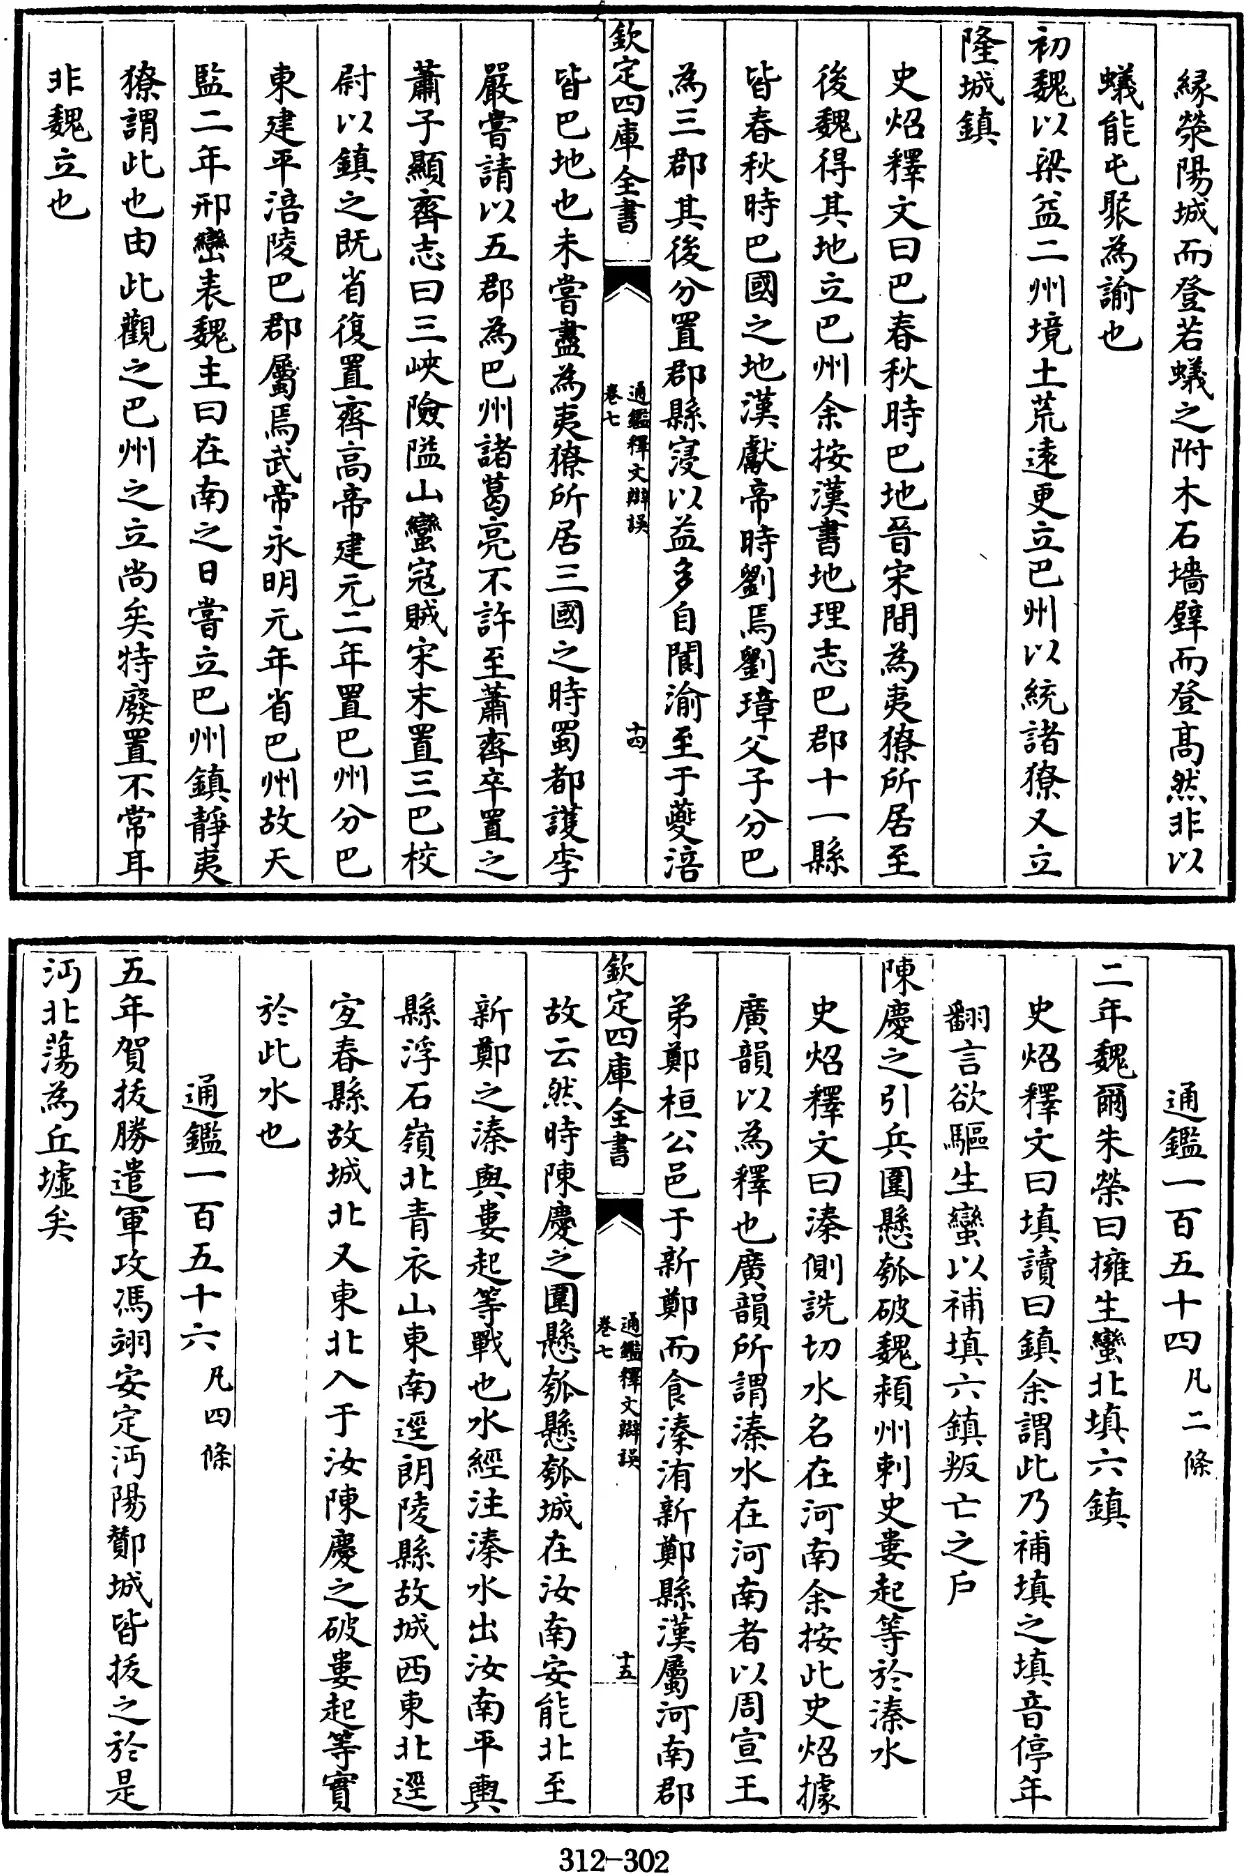 縁滎陽城而登若蟻之附木石墻壁而登髙然非以
蟻能屯聚為諭也
初魏以梁益二州境土荒逺更立巴州以統諸獠又立
隆城鎮
史炤釋文曰巴春秋時巴地晉宋間為夷獠所居至
後魏得其地立巴州余按漢書地理志巴郡十一縣
皆春秋時巴國之地漢獻帝時劉焉劉璋父子分巴
為三郡其後分置郡縣寖以益多自閬渝至于夔涪
欽定四庫全書
通鑑釋文辯誤
卷七
十四
皆巴地也未嘗盡為夷獠所居三國之時蜀都護李
嚴嘗請以五郡為巴州諸葛亮不許至蕭齊卒置之
蕭子顯齊志曰三峽險隘山蠻寇賊宋末置三巴校
尉以鎮之既省復置齊高帝建元二年置巴州分巴
東建平涪陵巴郡屬焉武帝永明元年省巴州故天
監二年邢巒表魏主曰在南之日嘗立巴州鎮靜夷
獠謂此也由此觀之巴州之立尚矣特廢置不常耳
非魏立也
通鑑一百五十四 凡二條
二年魏爾朱榮曰擁生蠻北填六鎮
史炤釋文曰填讀曰鎮余謂此乃補填之填音停年
翻言欲驅生蠻以補填六鎮叛亡之户
陳慶之引兵圍懸瓠破魏潁州刺史婁起等於溱水
史炤釋文曰溱側詵切水名在河南余按此史炤據
廣韻以為釋也廣韻所謂溱水在河南者以周宣王
弟鄭桓公邑于新鄭而食溱洧新鄭縣漢屬河南郡
欽定四庫全書
通鑑釋文辯誤
卷七
十五
故云然時陳慶之圍懸瓠懸瓠城在汝南安能北至
新鄭之溱與婁起等戰也水經注溱水出汝南平輿
縣浮石嶺北青衣山東南逕朗陵縣故城西東北逕
宜春縣故城北又東北入于汝陳慶之破婁起等實
於此水也
通鑑一百五十六 凡四條
五年賀拔勝遣軍攻馮翊安定沔陽酇城皆拔之於是
沔北蕩為丘墟矣
312-302